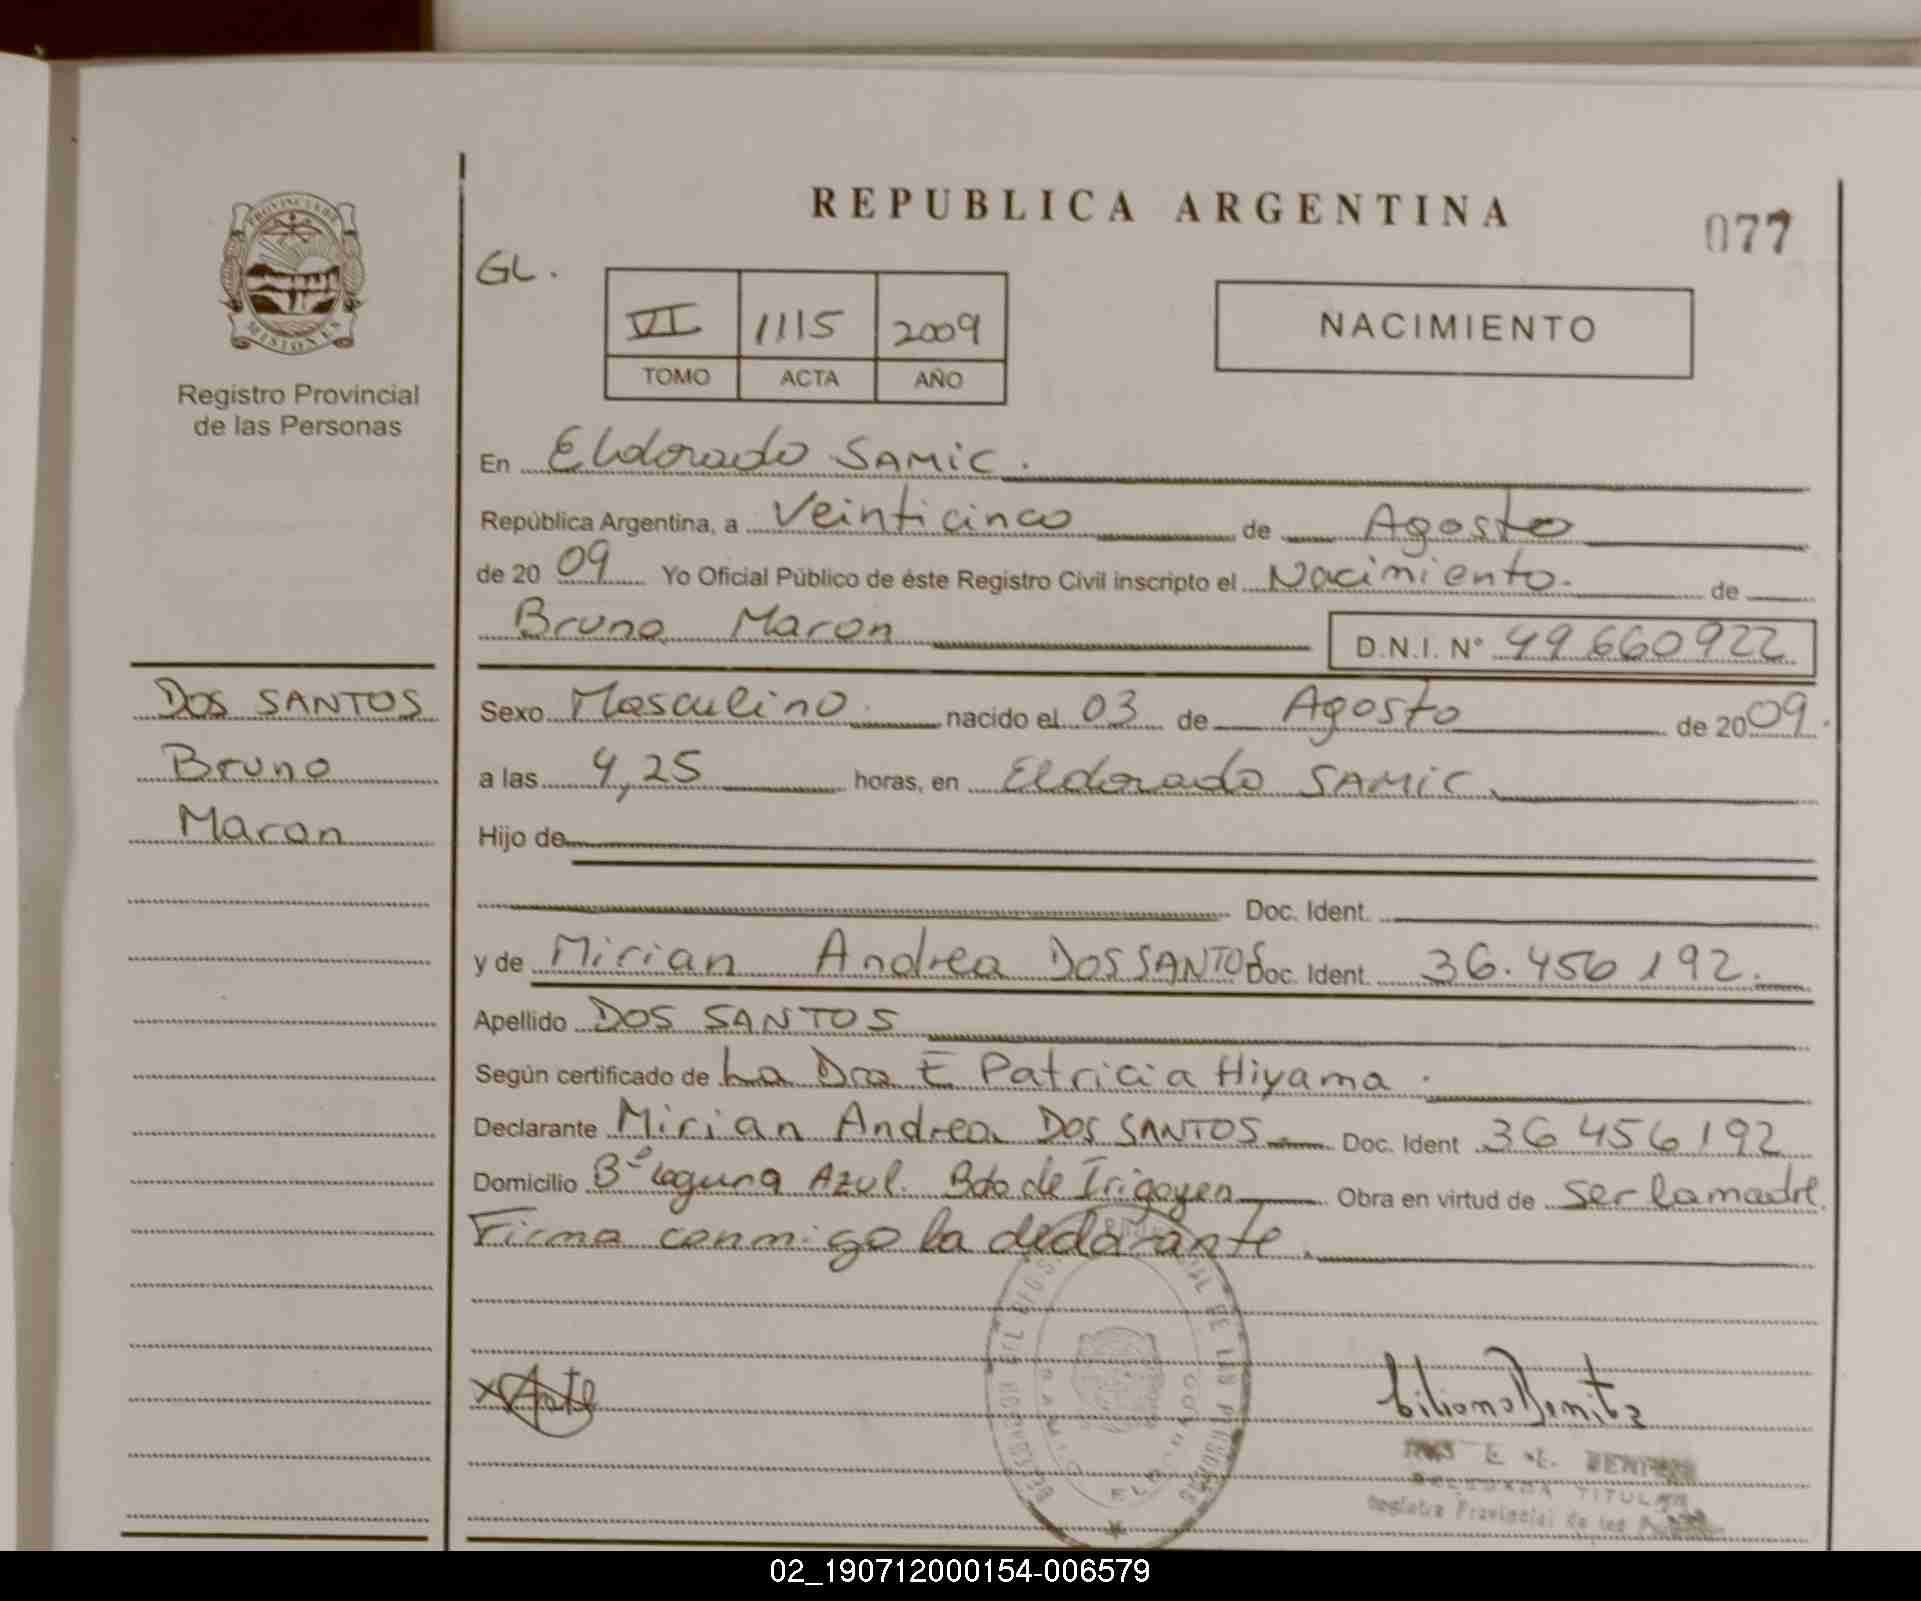 REPUBLICA ARGENTINA
077
PROVINCIA DE
MISIONES
Registro Provincial
de las Personas
GL.
VI 1115 2009
TOMO ACTA AÑO
NACIMIENTO
En Eldorado SAMIC.
República Argentina, a Veinticinco de Agosto
de 2009 Yo Oficial Público de éste Registro Civil inscripto el Nacimiento. de
Bruno Maron D.N.I. N° 49.660922
DOS SANTOS
Bruno
Maron
Sexo Masculino nacido el 03 de Agosto de 2009.
a las 4,25 horas, en Eldorado SAMIC
Hijo de
Doc. Ident.
y de Mirian Andrea DOS SANTOS Doc. Ident. 36.456192.
Apellido DOS SANTOS
Según certificado de La Dra E Patricia Hiyama.
Declarante Mirian Andrea DOS SANTOS Doc. Ident 36456192
Domicilio B° Laguna Azul. Bdo de Irigoyen Obra en virtud de ser la madre.
Firma conmigo la declarante.
DE LAS PERSONAS
TITULAR
Registro Provincial de las
02_190712000154-006579